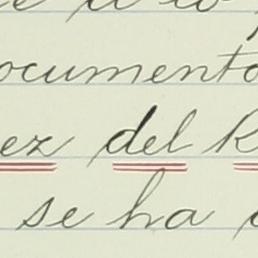 ocumento
ez del R
se ha